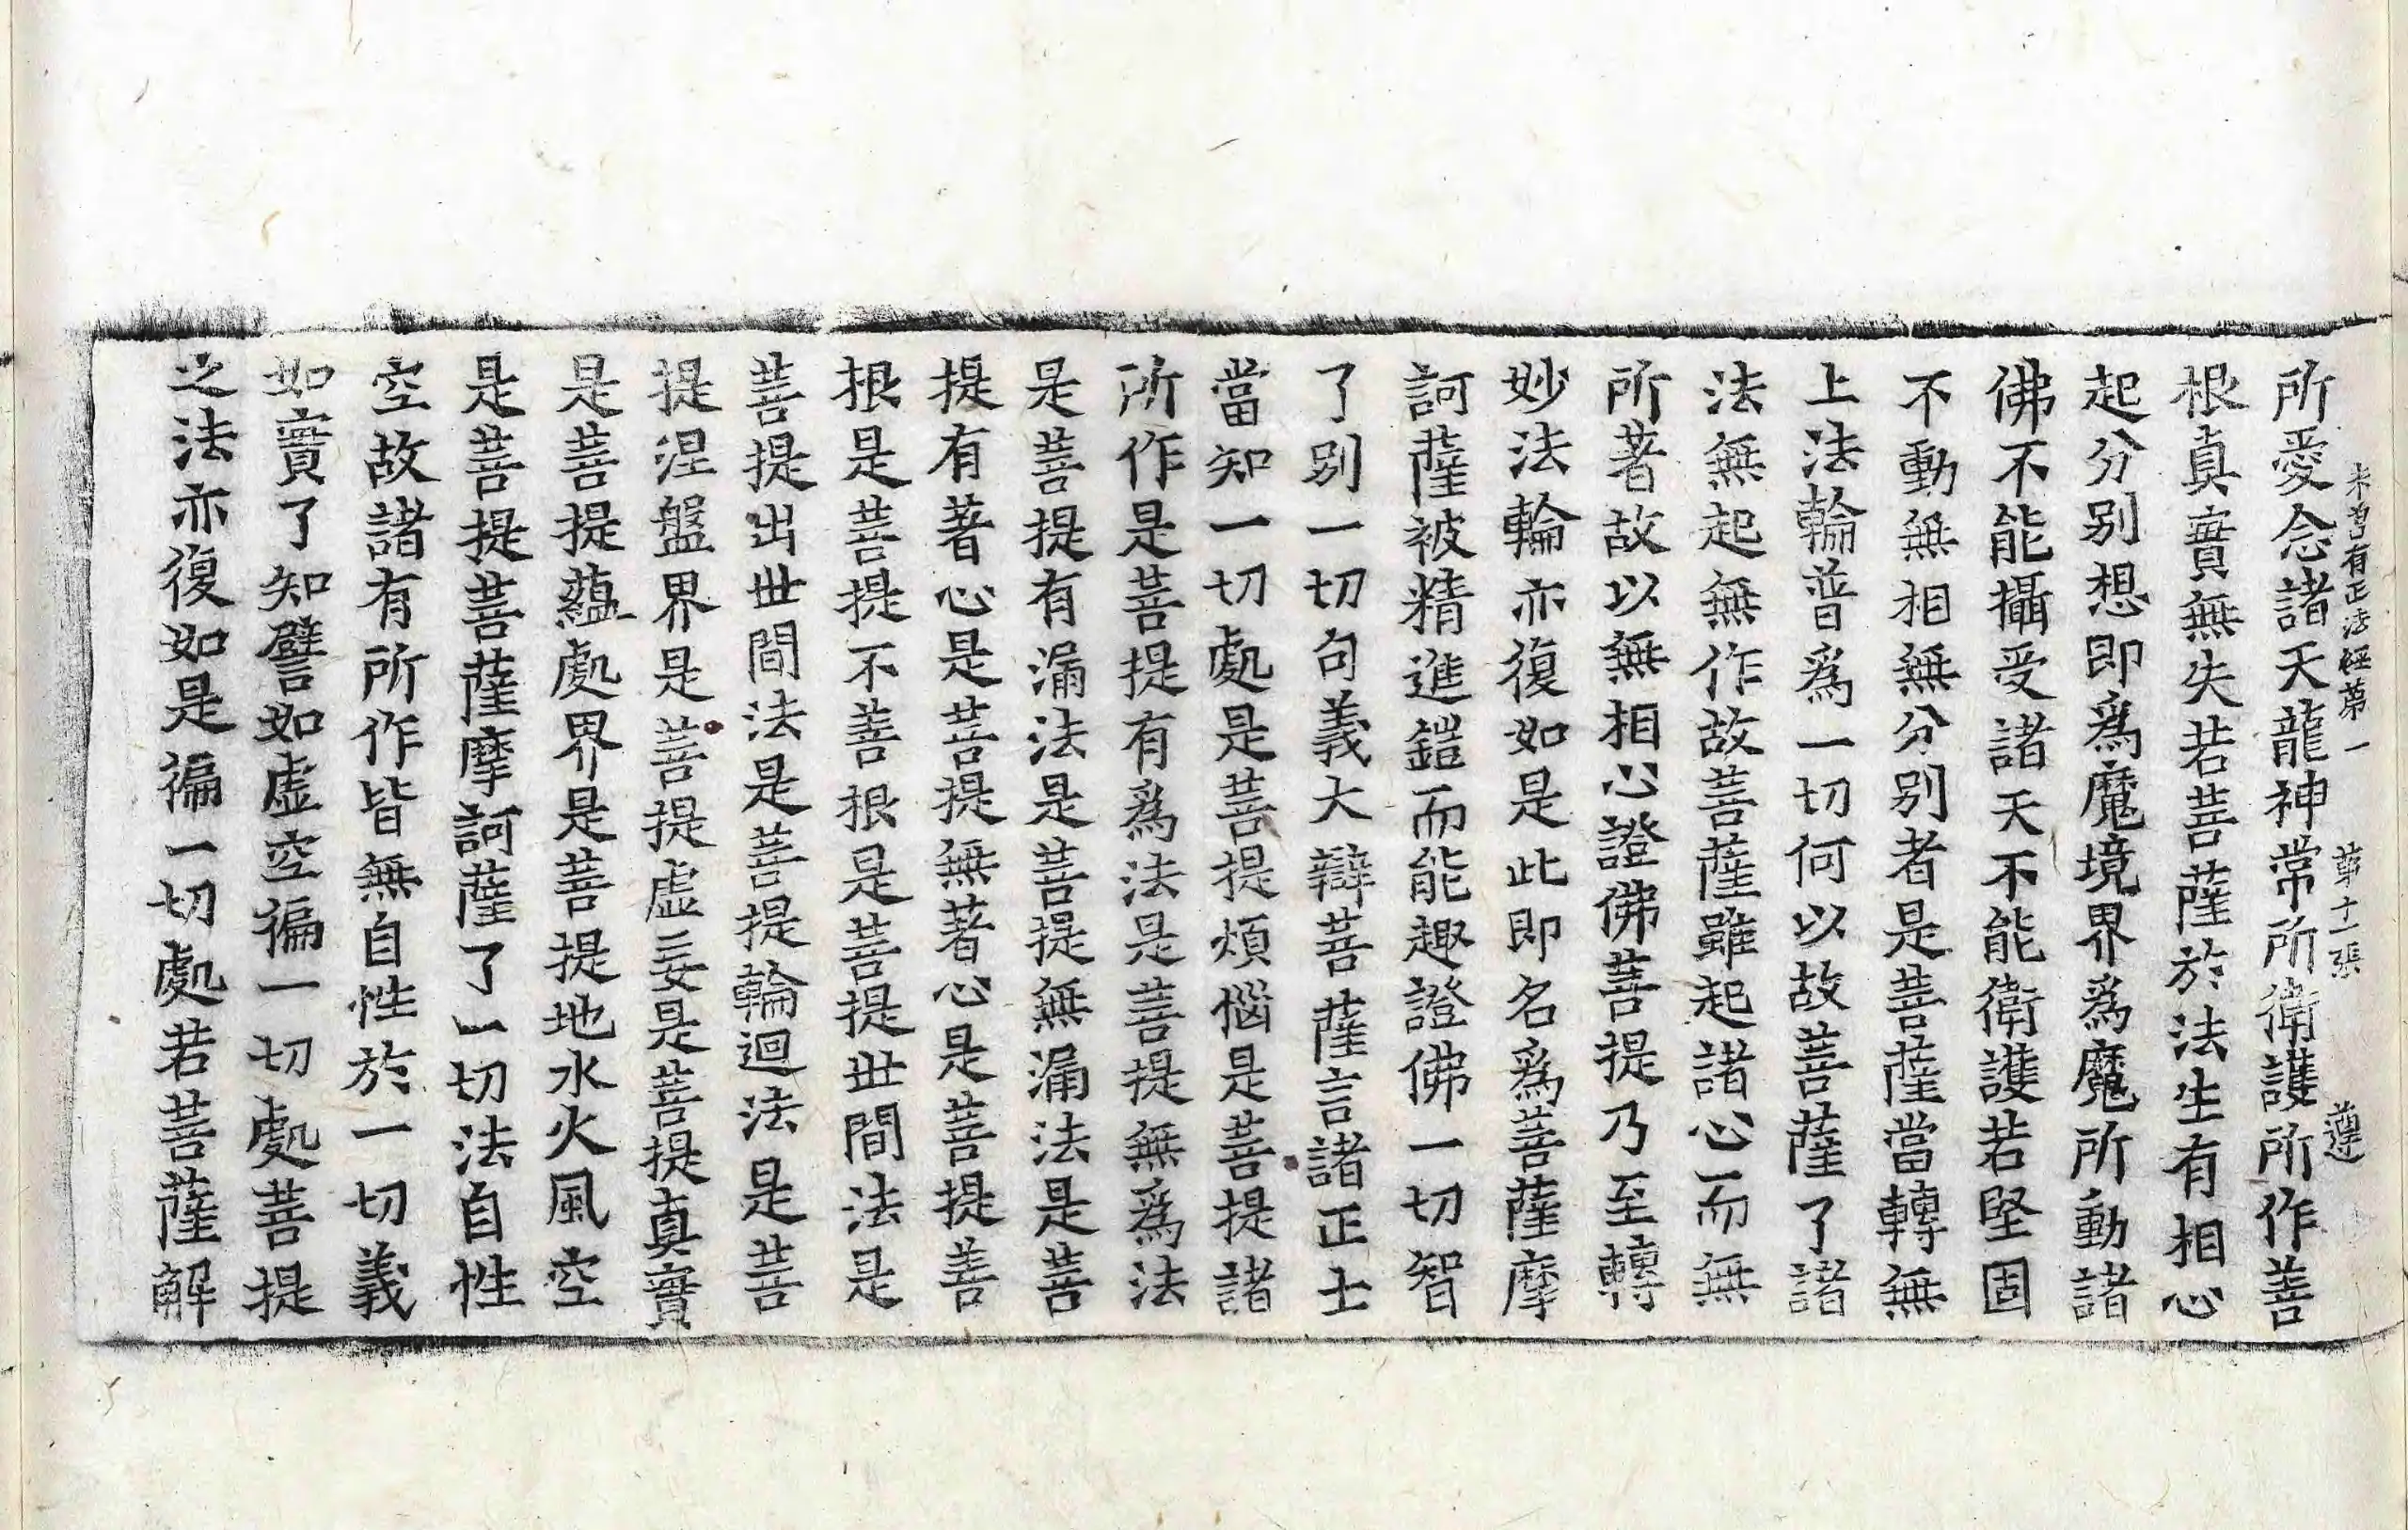 未曾有正法經第一 第十一張 遵
所愛念諸天龍神常所衛護所作善
根真實無失若菩薩於法生有相心
起分別想即爲魔境界爲魔所動諸
佛不能攝受諸天不能衛護若堅固
不動無相無分別者是菩薩當轉無
上法輪普爲一切何以故菩薩了諸
法無起無作故菩薩雖起諸心而無
所著故以無相心證佛菩提乃至轉
妙法輪亦復如是此即名爲菩薩摩
訶薩被精進鎧而能趣證佛一切智
了別一切句義大辯菩薩言諸正士
當知一切處是菩提煩惱是菩提諸
所作是菩提有爲法是菩提無爲法
是菩提有漏法是菩提無漏法是菩
提有著心是菩提無著心是菩提善
根是菩提不善根是菩提世間法是
菩提出世間法是菩提輪迴法是菩
提涅盤界是菩提虛妄是菩提真實
是菩提蘊處界是菩提地水火風空
是菩提菩薩摩訶薩了一切法自性
空故諸有所作皆無自性於一切義
如實了知譬如虛空徧一切處菩提
之法亦復如是徧一切處若菩薩解